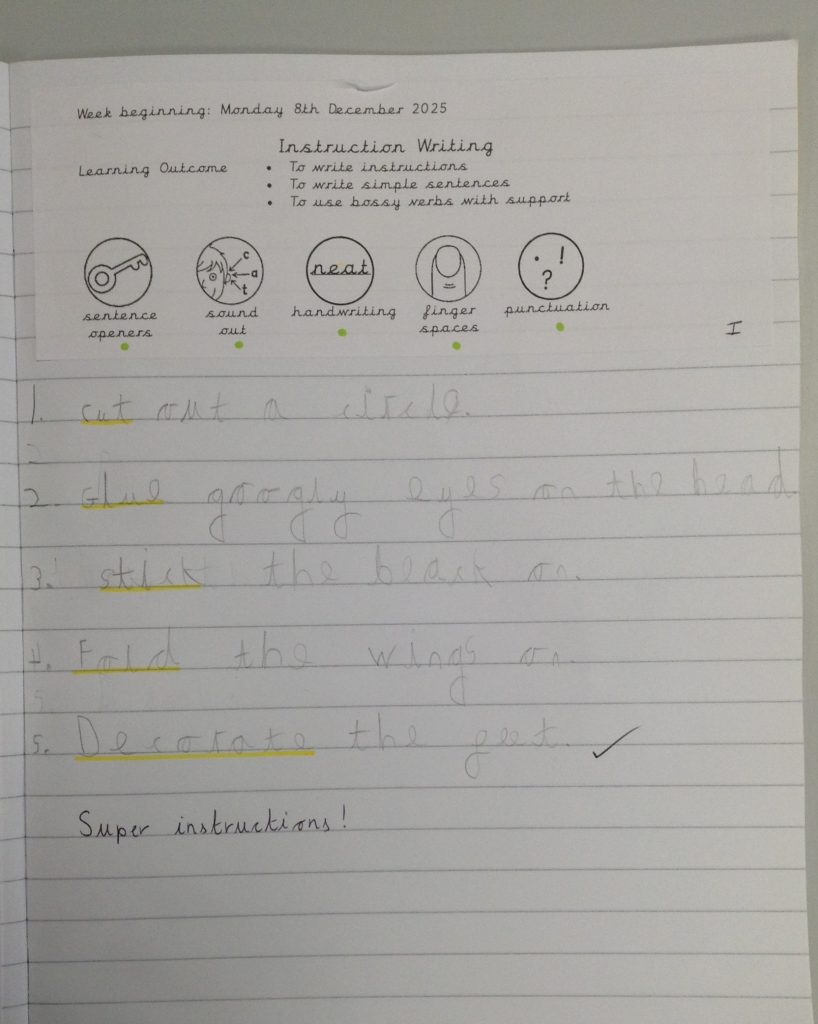 Week beginning: Monday 8th December 2025
Instruction Writing
Learning Outcome • To write instructions
• To write simple sentences
• To use bossy verbs with support
c
a
t
neat
. ! ?
sentence openers
sound out
handwriting
finger spaces
punctuation
I
1. cut out a circle.
2. Glue googly eyes on the head.
3. stick the beack on.
4. Fold the wings on.
5. Decorate the feet. ✓
Super instructions!